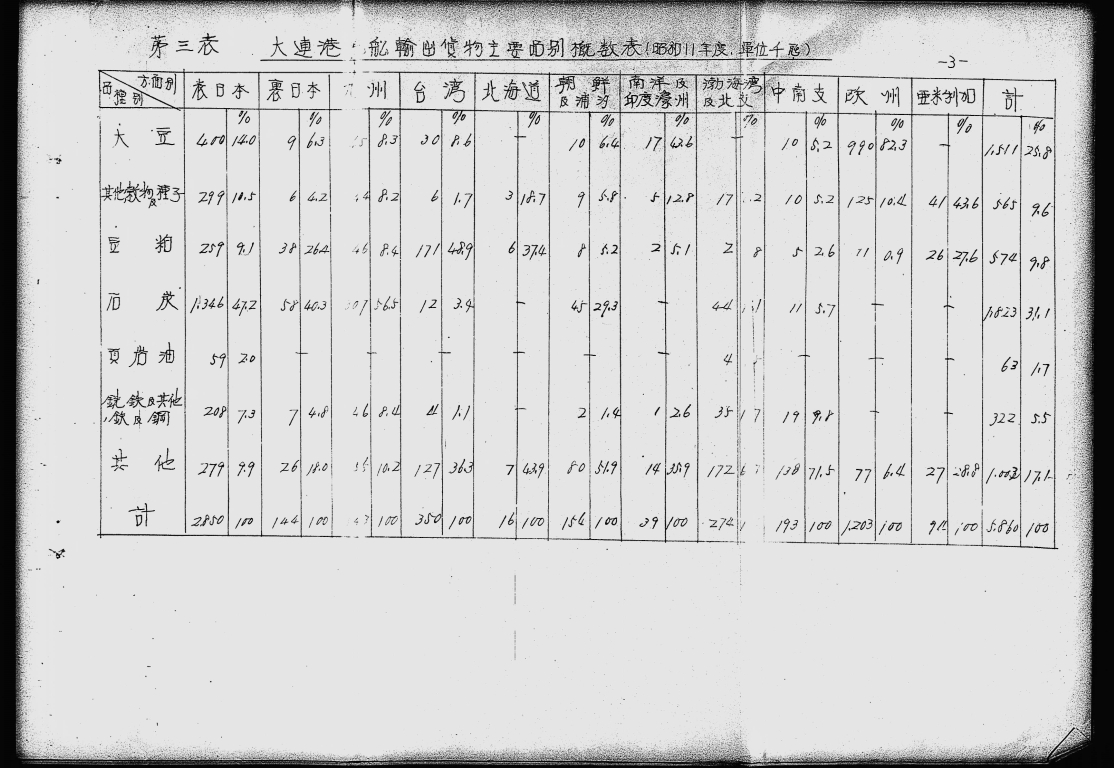 第三表 大連港 船輸出貨物主要面別概数表(昭和11年度 單位千瓲)
-3-
方面別 品種別 表日本 裏日本 州 台湾 北海道 朝鮮及浦汐 南洋及印度濠洲 渤海湾及北支 中南支 欧州 亜米利加 計
% % % % % % % % % % % %
大豆 400 14.0 9 6.3 8.3 30 8.6 — 10 6.4 17 43.6 — 10 5.2 990 82.3 — 1,511 25.8
其他穀物及種子 299 10.5 6 4.2 8.2 6 1.7 3 18.7 9 5.8 5 12.8 17 10 5.2 125 10.4 41 43.6 565 9.6
豆粕 259 9.1 38 26.4 46 8.4 171 48.9 6 37.4 8 5.2 2 5.1 2 5 2.6 11 0.9 26 27.6 574 9.8
石炭 1,346 47.2 58 40.3 56.5 12 3.4 — 45 29.3 — 44 11 5.7 — — 1,823 31.1
頁岩油 59 2.0 — — — — — — 4 — — — 63 1.7
銑鉄及其他鉄及鋼 208 7.3 7 4.8 46 8.4 4 1.1 — 2 1.4 1 2.6 35 19 9.8 — — 322 5.5
其他 279 9.9 26 18.0 10.2 127 36.3 7 43.9 80 51.9 14 35.9 172 138 71.5 77 6.4 27 28.8 1,003 17.1
計 2850 100 144 100 100 350 100 16 100 154 100 39 100 274 193 100 1,203 100 94 100 5,860 100